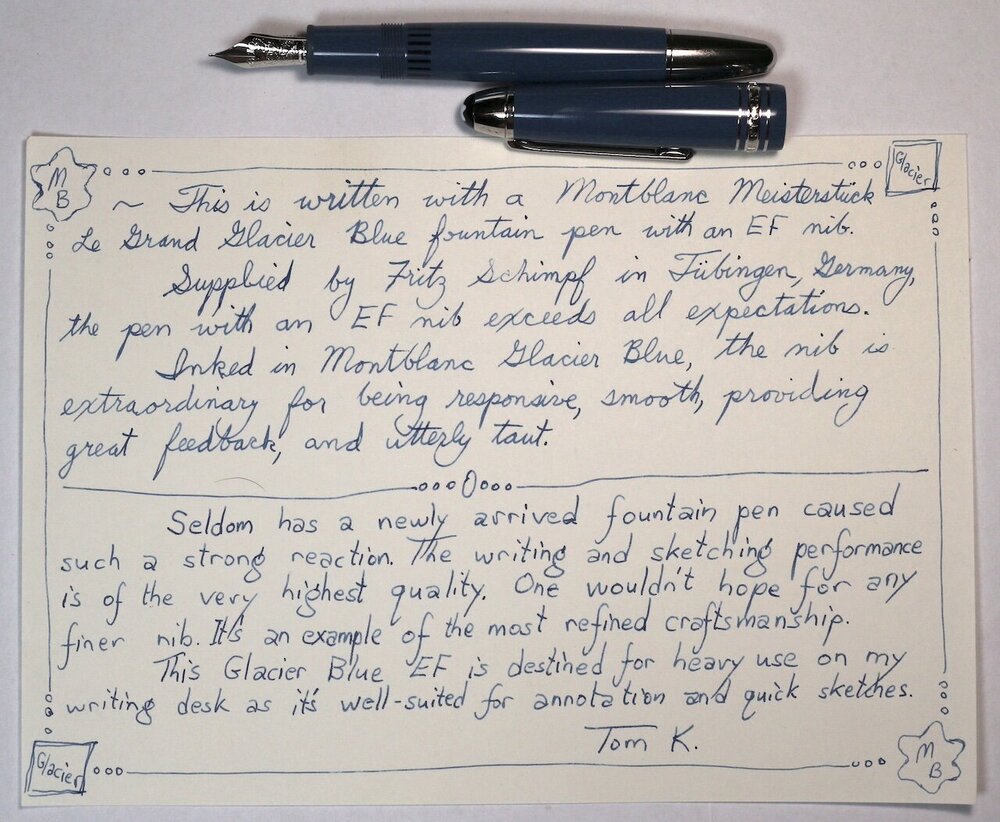 M B
Glacier
~ This is written with a Montblanc Meisterstück
Le Grand Glacier Blue fountain pen with an EF nib.
Supplied by Fritz Schimpf in Tübingen, Germany,
the pen with an EF nib exceeds all expectations.
Inked in Montblanc Glacier Blue, the nib is
extraordinary for being responsive, smooth, providing
great feedback, and utterly taut.
Seldom has a newly arrived fountain pen caused
such a strong reaction. The writing and sketching performance
is of the very highest quality. One wouldn't hope for any
finer nib. It's an example of the most refined craftsmanship.
This Glacier Blue EF is destined for heavy use on my
writing desk as it's well-suited for annotation and quick sketches.
Tom K.
Glacier
M B